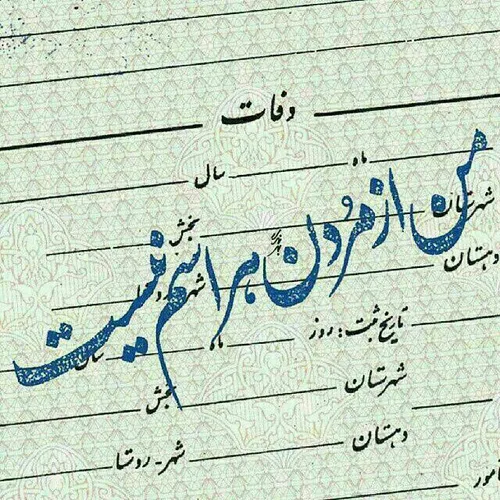 وفات
ماه
سال
شهرستان
بخش
من از مُردن هراسم نیست
دهستان
شهر
تاریخ ثبت: روز
ماه
سال
شهرستان
بخش
دهستان
شهر - روستا
مأمور